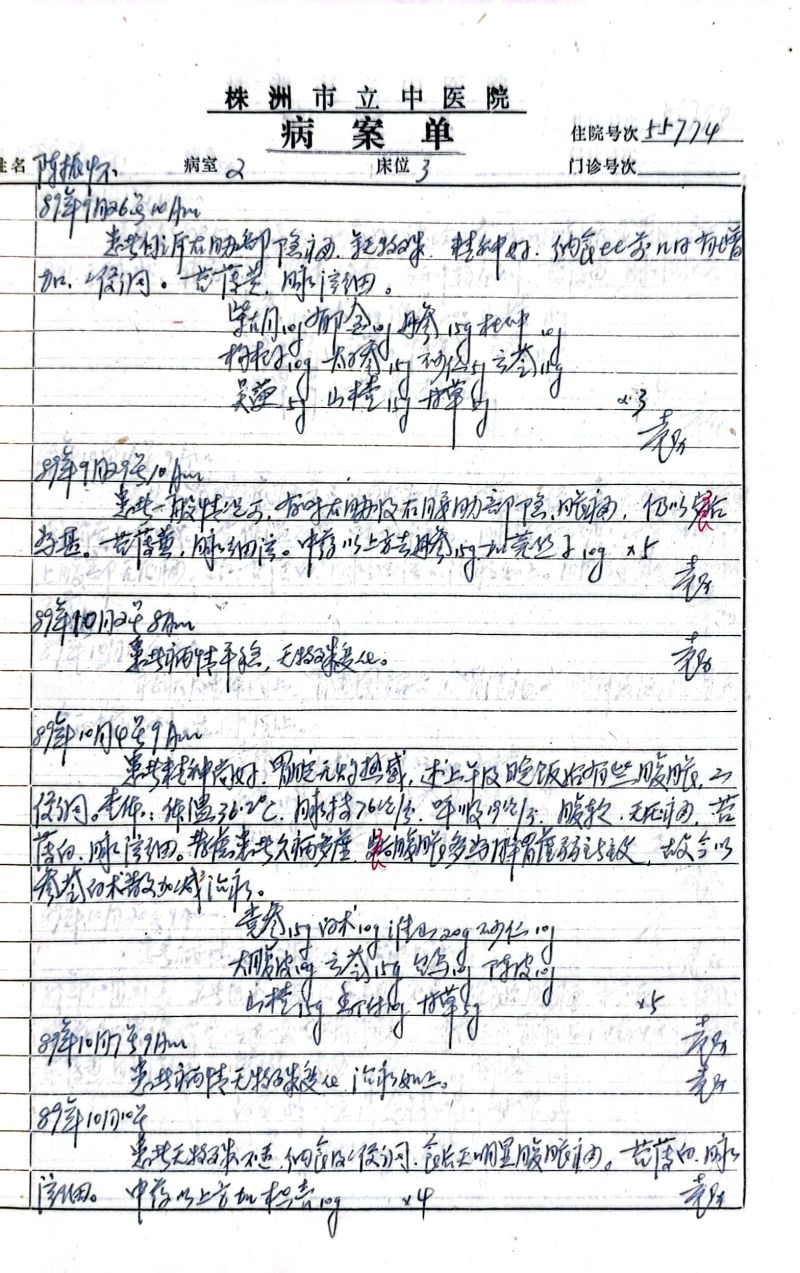 株洲市立中医院
病案单
住院号次 55774
姓名 陈振怀 病室 2 床位 3 门诊号次
89年9月26号10Am
患者自诉右胁部隐痛,无特殊,精神好,纳食 前 日有增
加,便调。苔薄黄,脉弦细。
柴胡10g 郁金10g 丹参15g 杜仲10g
枸杞子10g 太子参15g 砂仁5g 云苓15g
吴萸5g 山楂15g 甘草5g ×3
89年9月29号10Am
患者一般情况可,有时右胁及右腰肋部隐胀痛,仍以
为甚。苔薄黄,脉细弦。中药以上方去丹参15g加 10g ×5
89年10月2号8Am
患者病情平稳,无特殊变化。
89年10月4号9Am
患者精神尚好,胃脘无灼热感,述上午及晚饭后有些腹胀,二
便调。查体:体温36.2℃,脉搏76次/分,呼吸19次/分,腹软,无压痛,苔
薄白,脉弦细。考虑患者久病多虚,食后腹胀多为脾胃虚弱所致,故今以
参苓白术散加减治疗。
党参15g 白术10g 淮山20g 砂仁10g
大腹皮10g 云苓15g 台乌10g 陈皮10g
山楂15g 香附10g 甘草5g ×5
89年10月7号9Am
患者病情无特殊变化 治疗如上。
89年10月10号
患者无特殊不适,纳食及二便调,食后无明显腹胀痛。苔薄白,脉
弦细。中药以上方加枳壳10g ×4